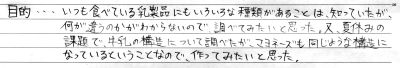 目的・・・いつも食べている乳製品にもいろいろな種類があることは、知っていたが、
何が違うのかがわからないので、調べてみたいと思った。又、夏休みの
課題で、牛乳の構造について調べたが、マヨネーズも同じような構造に
なっているということなので、作ってみたいと思った。